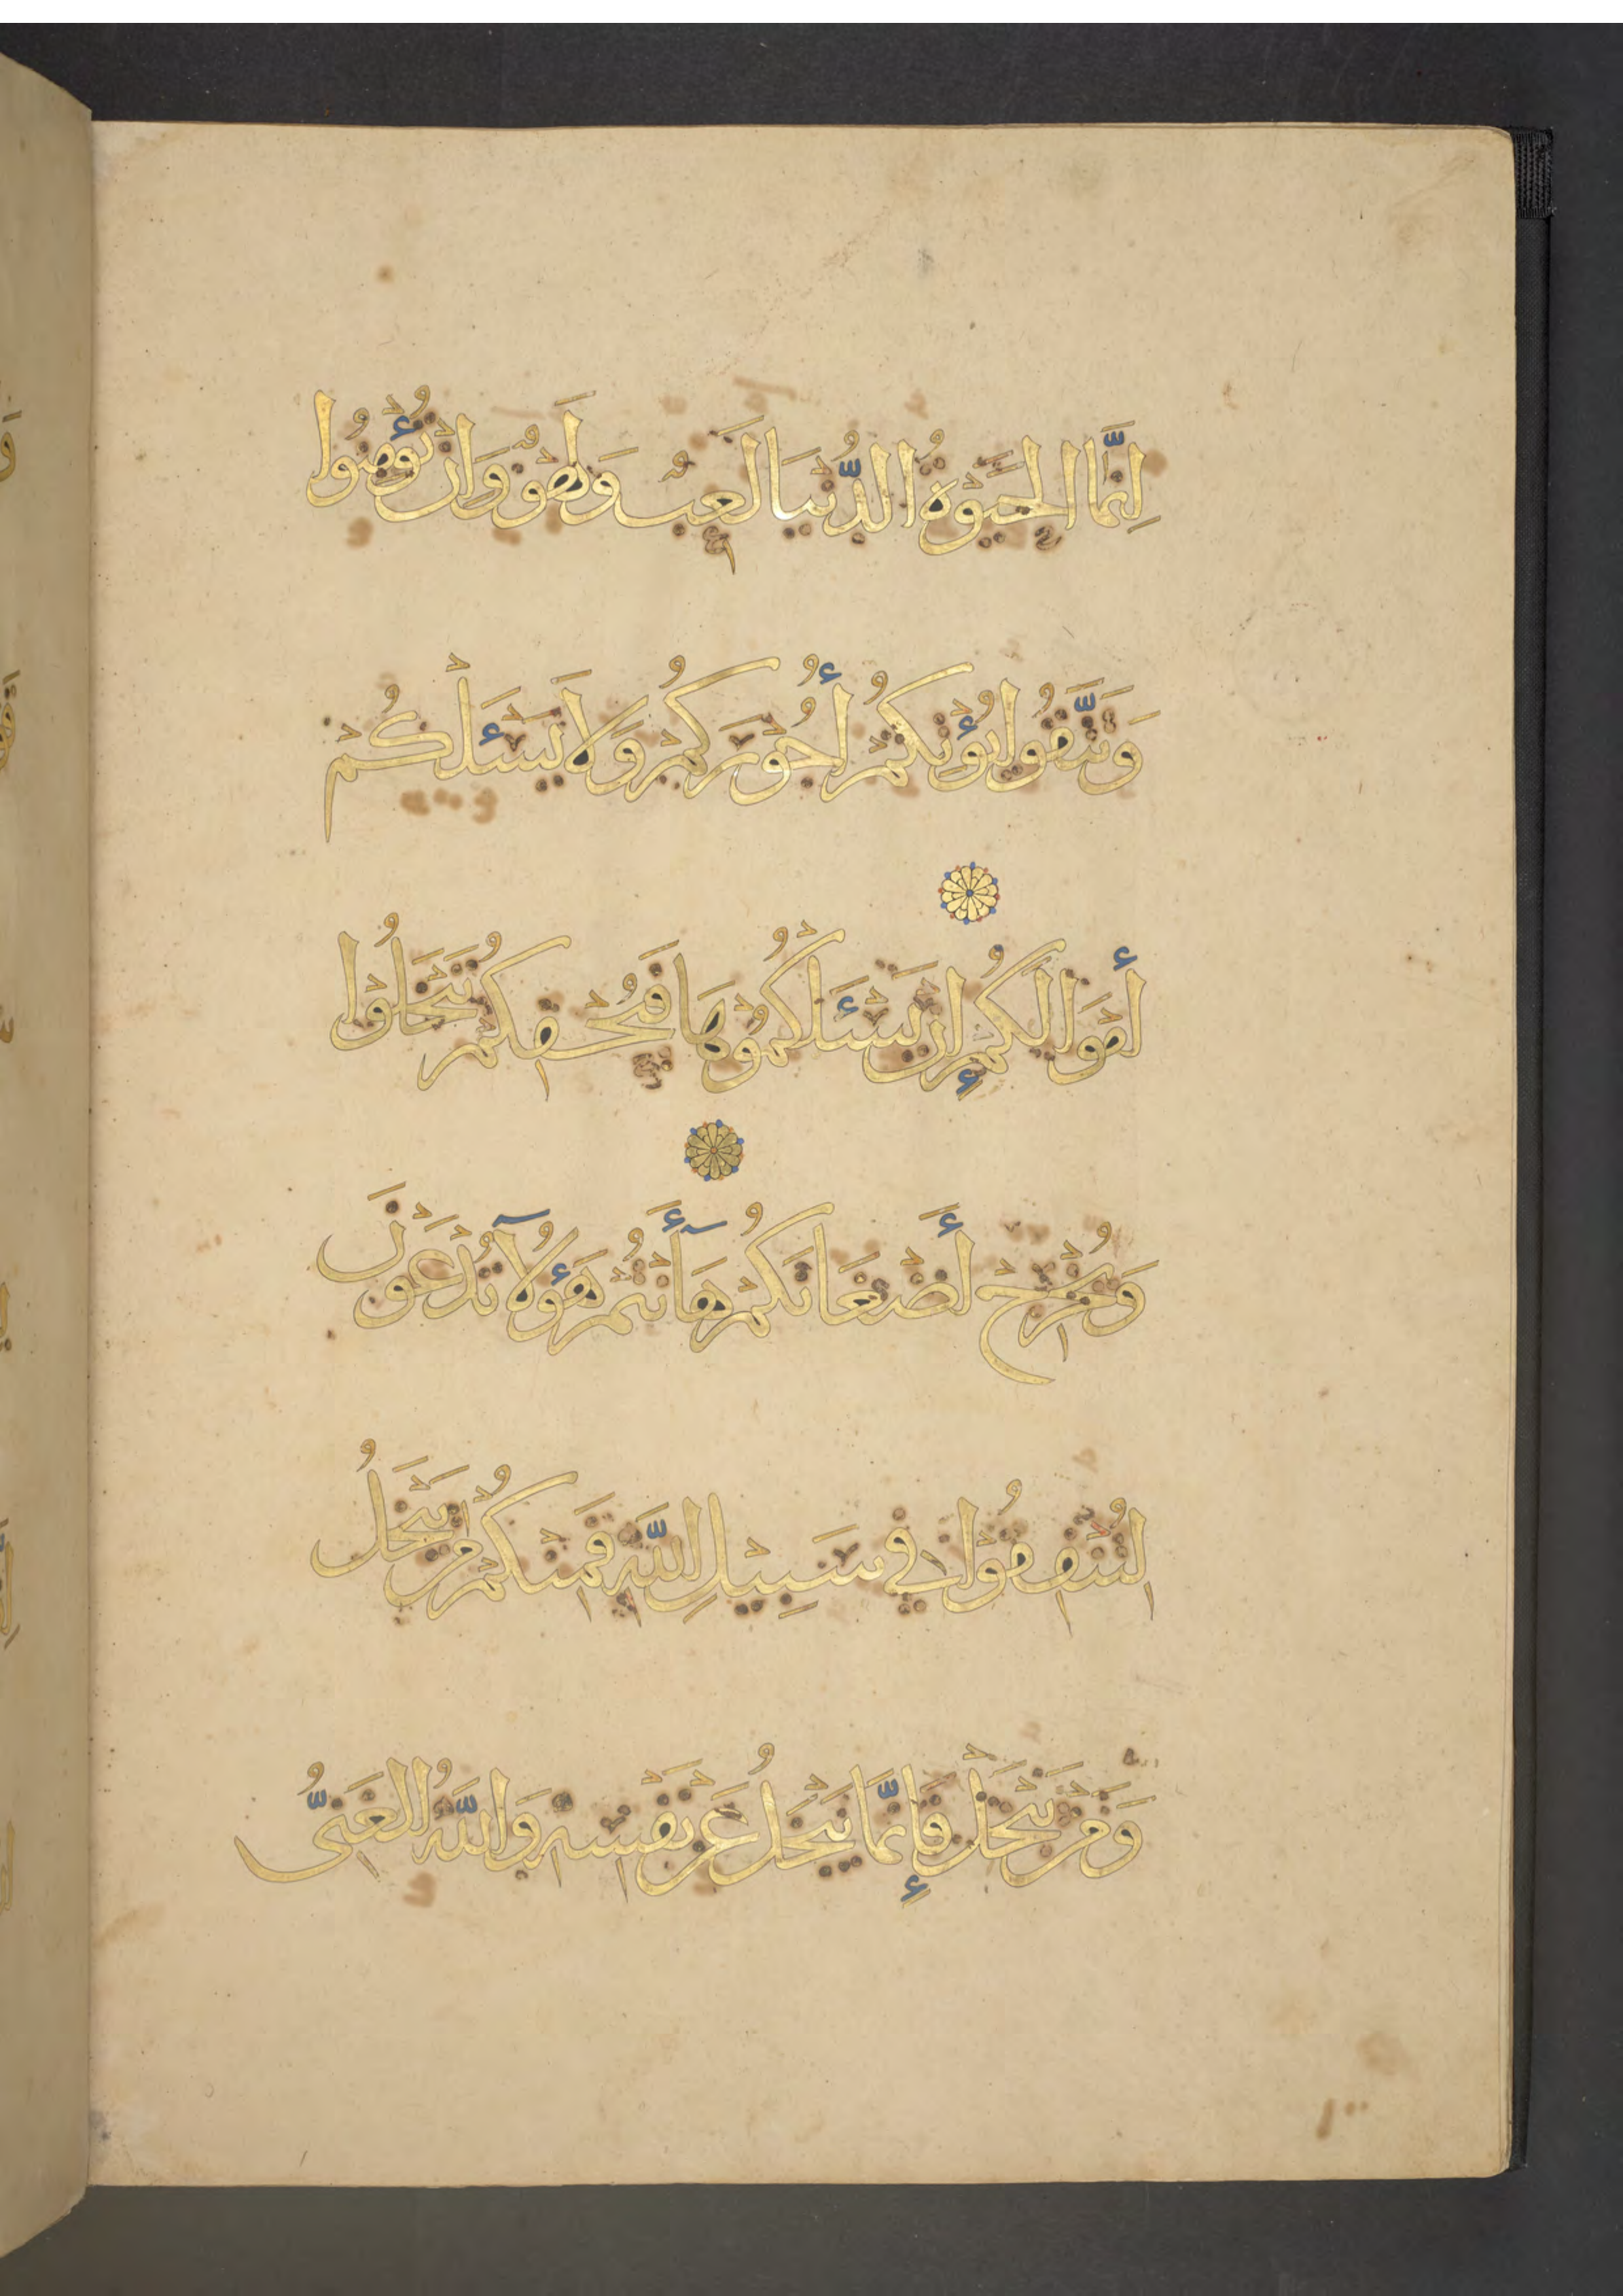 إِنَّمَا الْحَيَوٰةُ الدُّنْيَا لَعِبٌ وَلَهْوٌ وَإِنْ تُؤْمِنُوا
وَتَتَّقُوا يُؤْتِكُمْ أُجُورَكُمْ وَلَا يَسْئَلْكُمْ
أَمْوَالَكُمْ إِنْ يَسْئَلْكُمُوهَا فَيُحْفِكُمْ تَبْخَلُوْا
وَيُخْرِجْ أَضْغَانَكُمْ هَآأَنْتُمْ هَؤُلَآ تُدْعَوْنَ
لِتُنْفِقُوْا فِي سَبِيْلِ اللَّهِ فَمِنْكُمْ مَنْ يَبْخَلُ
وَمَنْ يَبْخَلْ فَإِنَّمَا يَبْخَلُ عَنْ نَفْسِهِ وَاللَّهُ الْغَنِىُّ